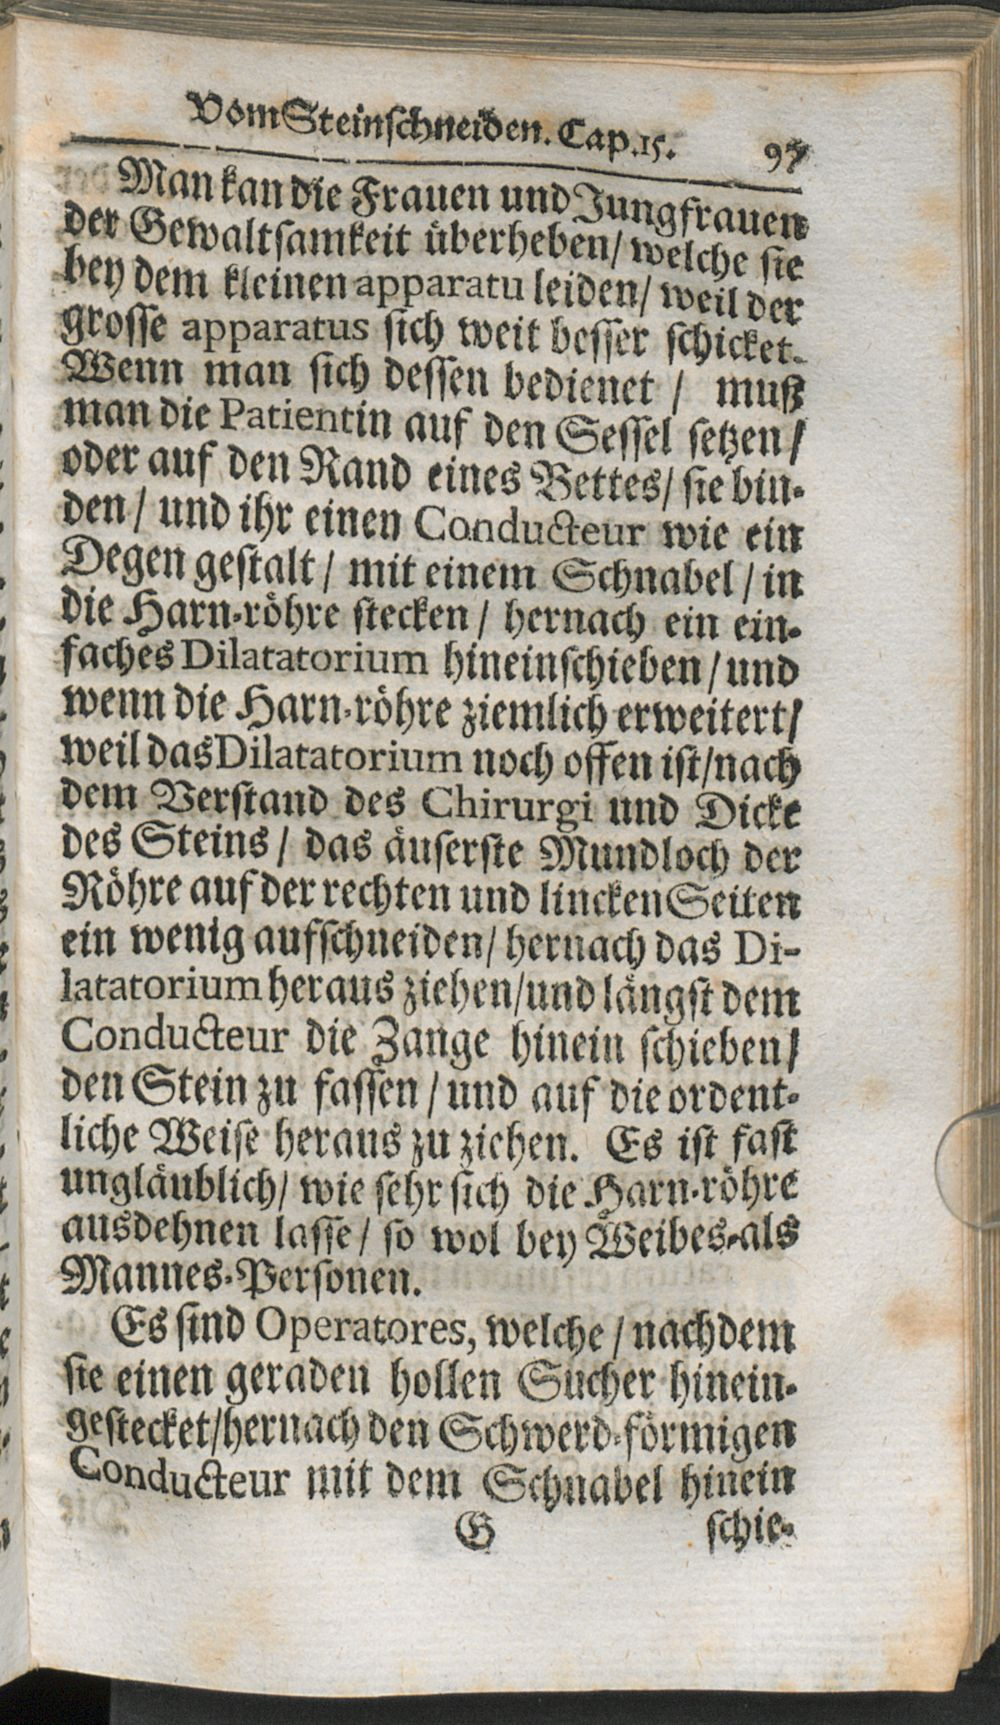 Vom Steinschneiden. Cap. 15. 97
Man kan die Frauen und Jungfrauen
der Gewaltsamkeit überheben/ welche sie
bey dem kleinen apparatu leiden/ weil der
grosse apparatus sich weit besser schicket.
Wenn man sich dessen bedienet / muß
man die Patientin auf den Sessel setzen/
oder auf den Rand eines Bettes/ sie bin-
den / und ihr einen Conducteur wie ein
Degen gestalt / mit einem Schnabel / in
die Harn-röhre stecken / hernach ein ein-
faches Dilatatorium hineinschieben / und
wenn die Harn-röhre ziemlich erweitert/
weil das Dilatatorium noch offen ist/nach
dem Verstand des Chirurgi und Dicke
des Steins / das äuserste Mundloch der
Röhre auf der rechten und lincken Seiten
ein wenig aufschneiden/ hernach das Di-
latatorium heraus ziehen/und längst dem
Conducteur die Zange hinein schieben/
den Stein zu fassen / und auf die ordent-
liche Weise heraus zu ziehen. Es ist fast
ungläublich/ wie sehr sich die Harn-röhre
ausdehnen lasse/ so wol bey Weibes-als
Mannes-Personen.
Es sind Operatores, welche / nachdem
sie einen geraden hollen Sucher hinein-
gestecket/hernach den Schwerd-förmigen
Conducteur mit dem Schnabel hinein
G schie-